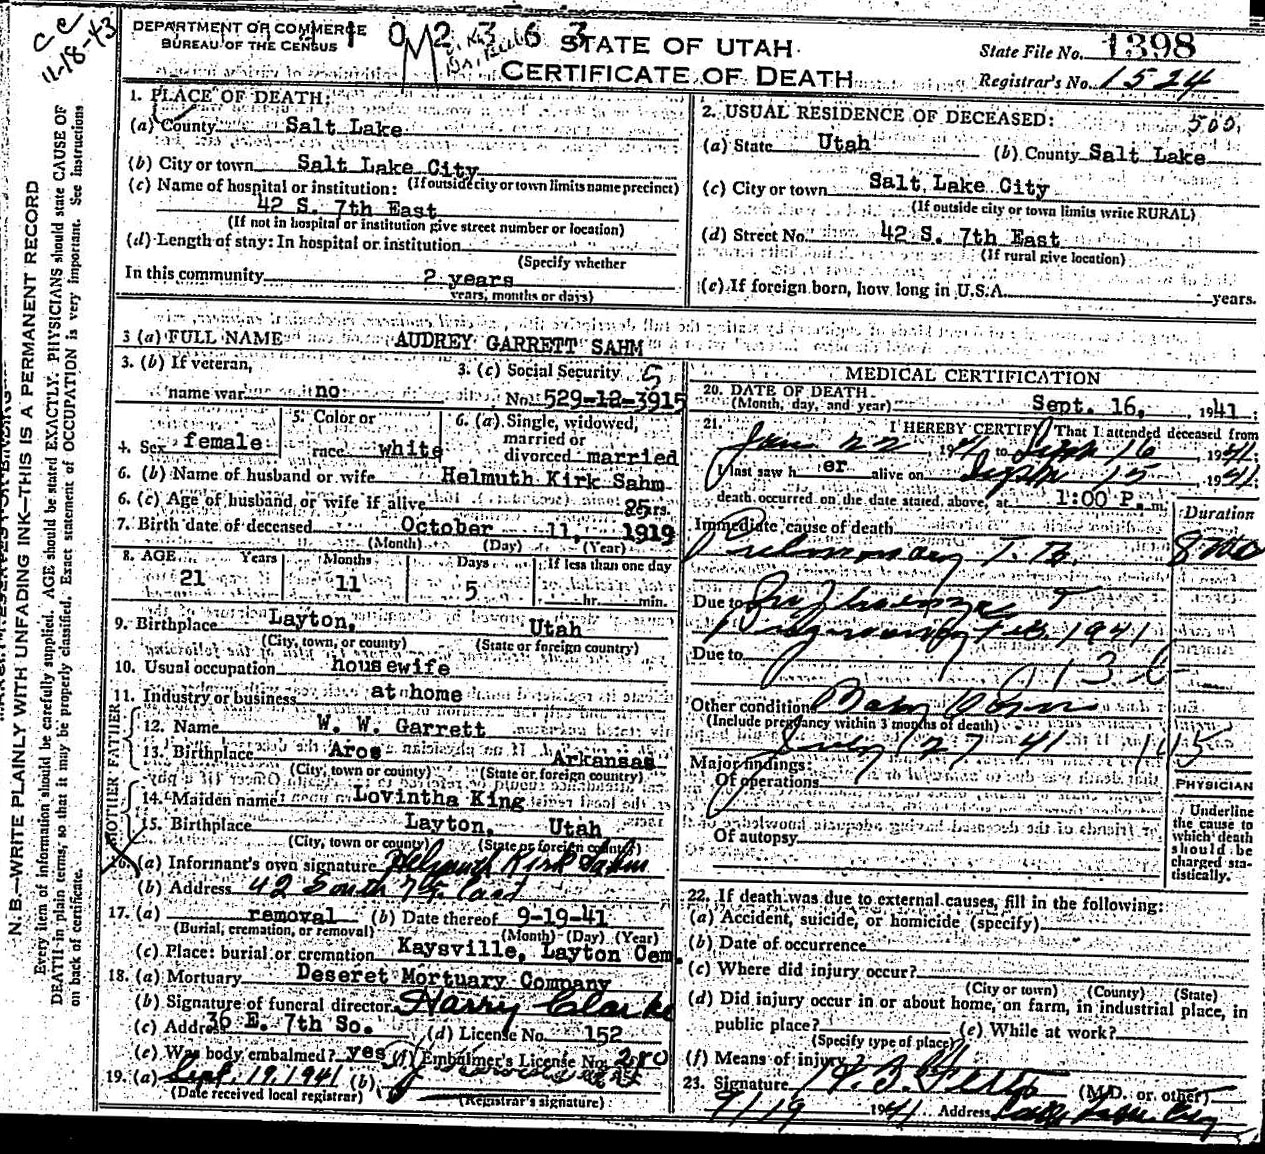 CC
11-18-43
DEPARTMENT OF COMMERCE
BUREAU OF THE CENSUS
STATE OF UTAH
CERTIFICATE OF DEATH
State File No. 1398
Registrar's No. 1524
N. B.—WRITE PLAINLY WITH UNFADING INK—THIS IS A PERMANENT RECORD
Every item of information should be carefully supplied. AGE should be stated EXACTLY. PHYSICIANS should state CAUSE OF
DEATH in plain terms, so that it may be properly classified. Exact statement of OCCUPATION is very important. See Instructions
on back of certificate.
1. PLACE OF DEATH:
(a) County Salt Lake
(b) City or town Salt Lake City
(c) Name of hospital or institution: (If outside city or town limits name precinct)
42 S. 7th East
(If not in hospital or institution give street number or location)
(d) Length of stay: In hospital or institution
(Specify whether
In this community 2 years
years, months or days)
2. USUAL RESIDENCE OF DECEASED: 500.
(a) State Utah (b) County Salt Lake
(c) City or town Salt Lake City
(If outside city or town limits write RURAL)
(d) Street No. 42 S. 7th East
(If rural give location)
(e) If foreign born, how long in U.S.A. years.
3 (a) FULL NAME AUDREY GARRETT SAHM
3. (b) If veteran, name war no
3. (c) Social Security No. 529-12-3915
5
4. Sex female
5. Color or race white
6. (a) Single, widowed, married or divorced married
6. (b) Name of husband or wife Helmuth Kirk Sahm
6. (c) Age of husband or wife if alive 25 yrs.
7. Birth date of deceased October 11, 1919
(Month) (Day) (Year)
8. AGE Years Months Days If less than one day
21 11 5 hr. min.
9. Birthplace Layton, Utah
(City, town, or county) (State or foreign country)
10. Usual occupation housewife
11. Industry or business at home
FATHER
12. Name W. W. Garrett
13. Birthplace Aros Arkansas
(City, town or county) (State or foreign country)
MOTHER
14. Maiden name Lovintha King
15. Birthplace Layton, Utah
(City, town or county) (State or foreign country)
16. (a) Informant's own signature Helmuth Kirk Sahm
(b) Address 42 South 7th East
17. (a) removal (b) Date thereof 9-19-41
(Burial, cremation, or removal) (Month) (Day) (Year)
(c) Place: burial or cremation Kaysville, Layton Cem.
18. (a) Mortuary Deseret Mortuary Company
(b) Signature of funeral director Harry Clarke
(c) Address 36 E. 7th So. (d) License No. 152
(e) Was body embalmed? yes (f) Embalmer's License No. 280
19. (a) Sept. 19, 1941 (b)
(Date received local registrar) (Registrar's signature)
MEDICAL CERTIFICATION
20. DATE OF DEATH
(Month, day, and year) Sept. 16, 1941
21. I HEREBY CERTIFY That I attended deceased from
Jan 22, 1941 to Sept 16 1941.
I last saw her alive on Sept 15 1941
death occurred on the date stated above, at 1:00 P. m.
Duration
Immediate cause of death
Pulmonary T.B. 8 mo
Due to Influenza
Pregnancy Feb. 1941
Due to
Other condition Baby Born
(Include pregnancy within 3 months of death)
July 27 41
Major findings:
Of operations
Of autopsy
PHYSICIAN
Underline
the cause to
which death
should be
charged sta-
tistically.
22. If death was due to external causes, fill in the following:
(a) Accident, suicide, or homicide (specify)
(b) Date of occurrence
(c) Where did injury occur?
(City or town) (County) (State)
(d) Did injury occur in or about home, on farm, in industrial place, in
public place? (e) While at work?
(Specify type of place)
(f) Means of injury?
23. Signature (M.D. or other)
9/19 1941 Address Salt Lake City